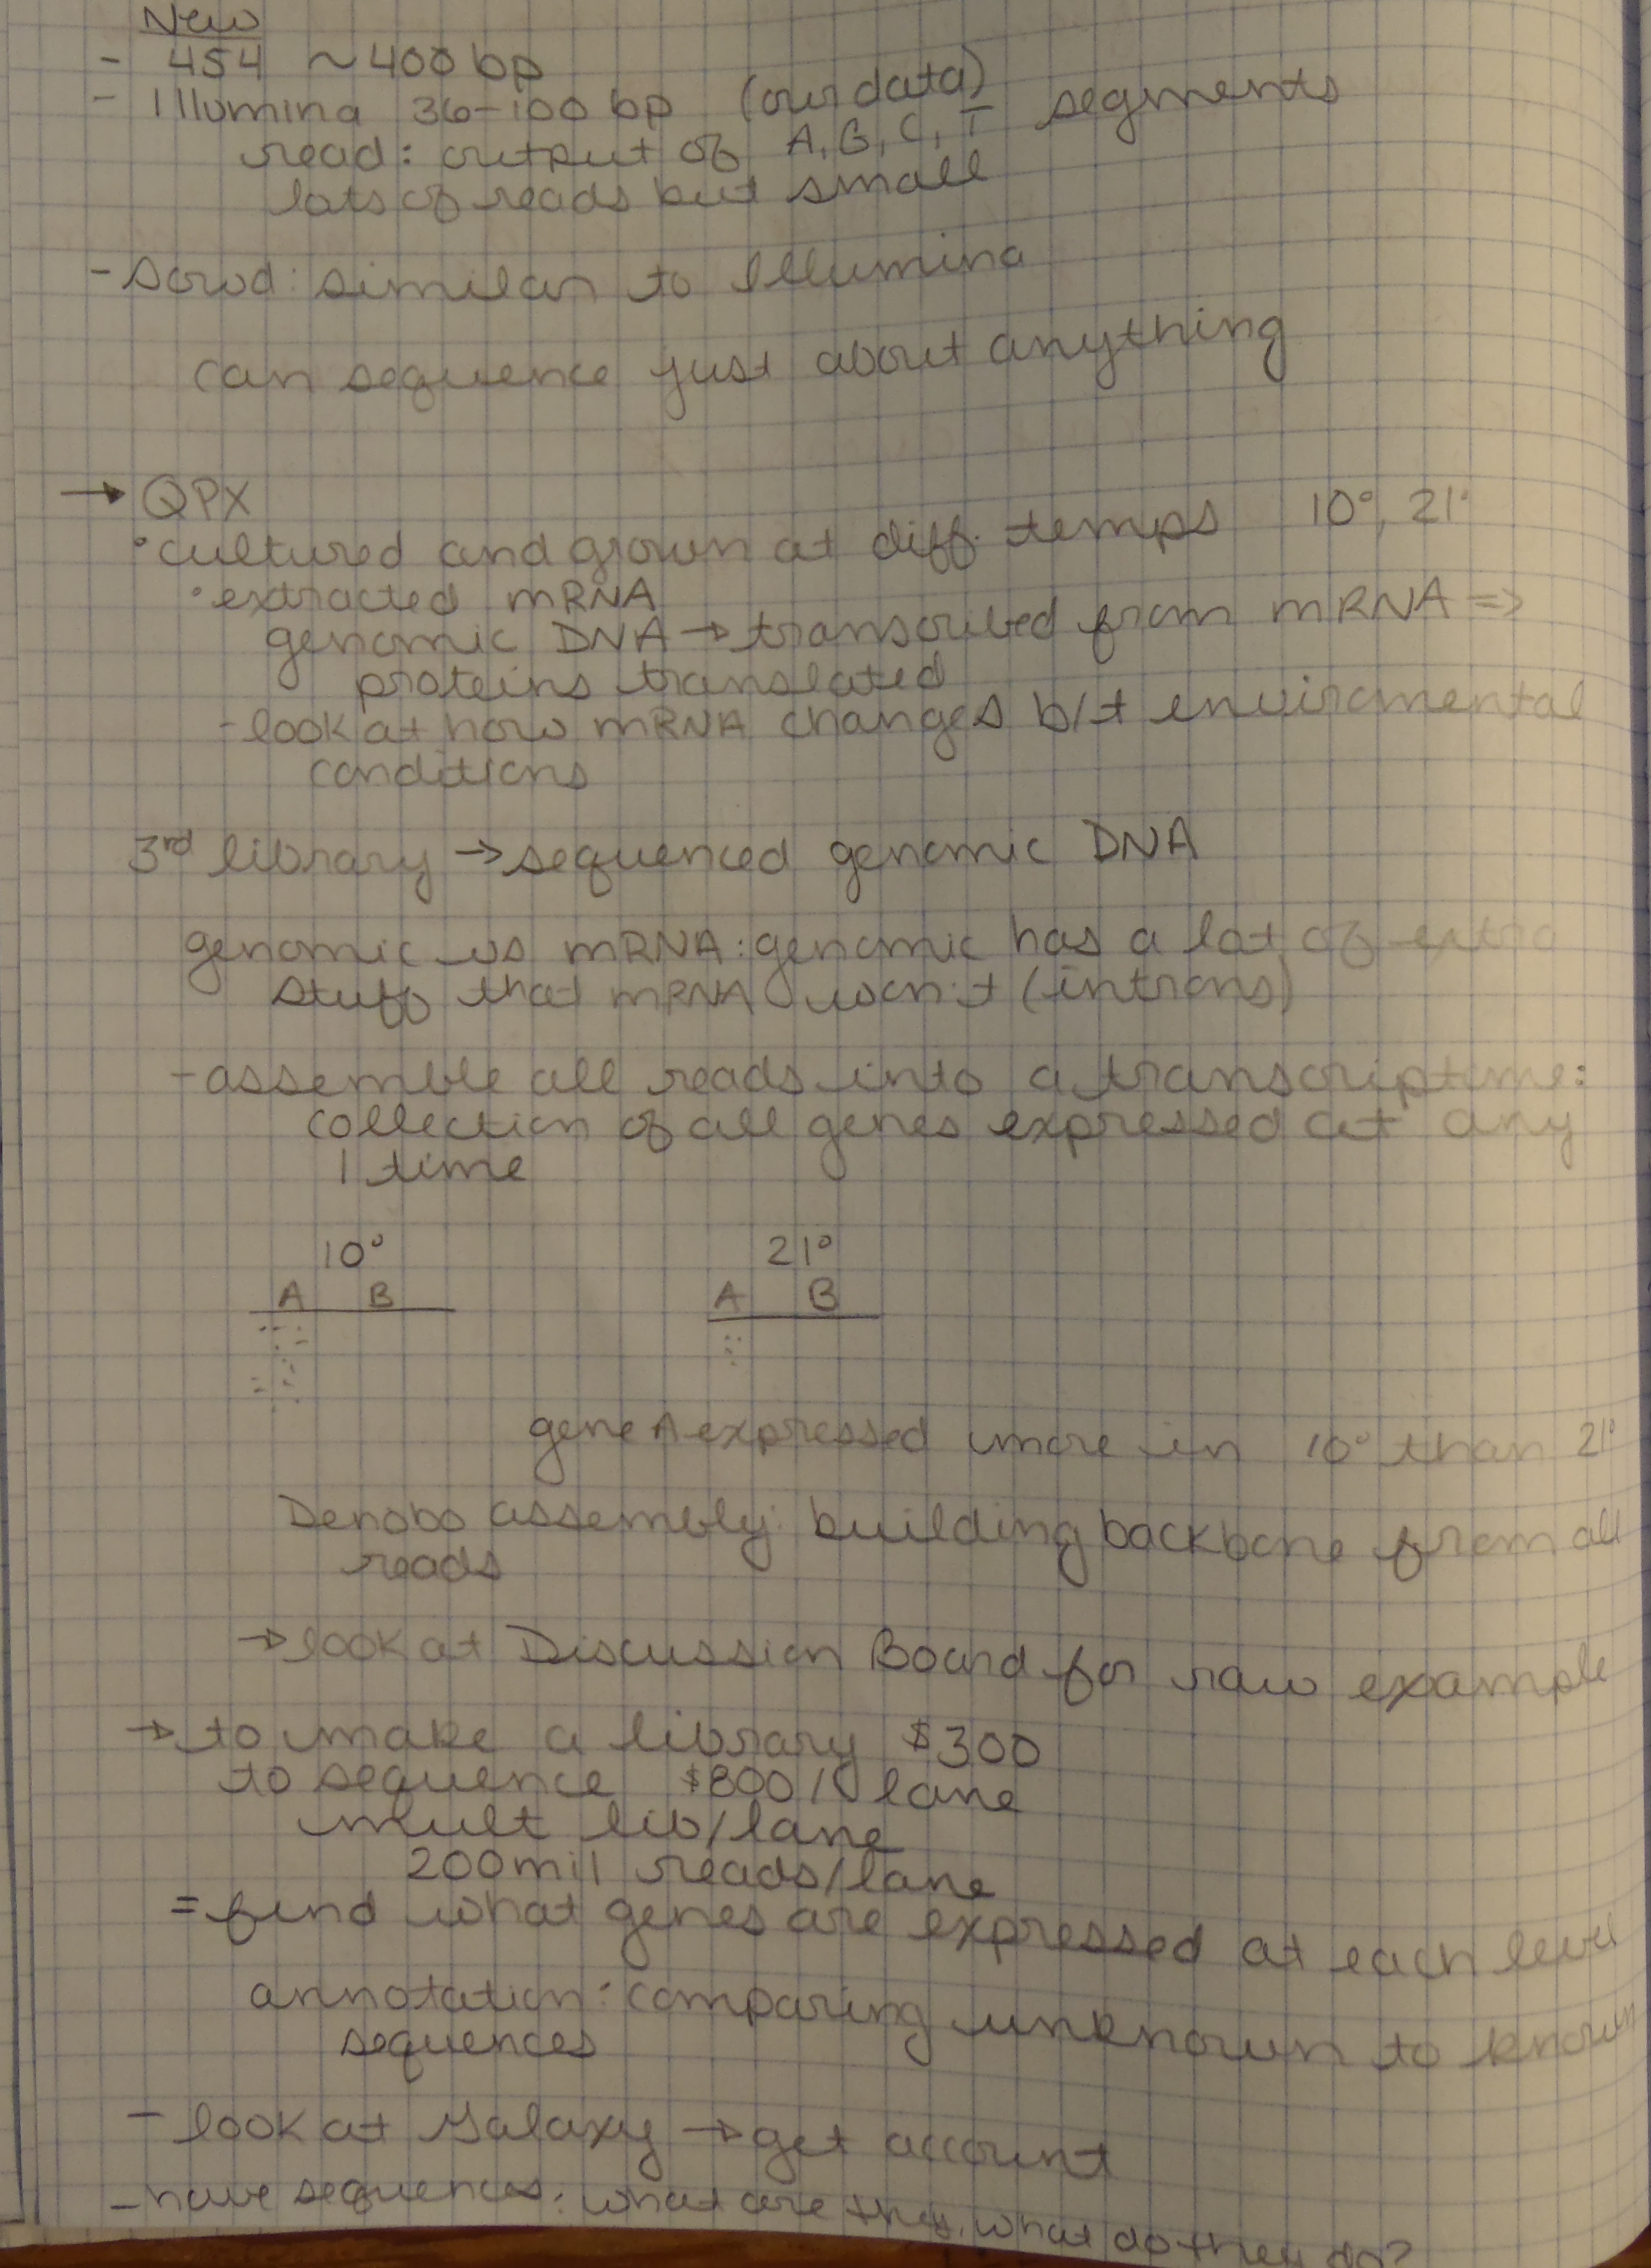 New
- 454 ~400 bp
- Illumina 36-100 bp (our data)
read: output of A, G, C, T segments
lots of reads but small
- Sowd: similar to Illumina
can sequence just about anything
→ QPX
• cultured and grown at diff. temps 10°, 21°
• extracted mRNA
genomic DNA → transcribed from mRNA =>
proteins translated
- look at how mRNA changes b/t enviromental
conditions
3rd library → sequenced genomic DNA
genomic vs mRNA: genomic has a lot of extra
stuff that mRNA won't (introns)
- assemble all reads into a transcriptome:
collection of all genes expressed at any
1 time
10° 21°
A B A B
gene A expressed more in 10° than 21°
Denobo assembly: building backbone from all
reads
→ look at Discussion Board for raw example
→ to make a library $300
to sequence $800/lane
mult lib/lane
200mil reads/lane
= find what genes are expressed at each level
annotation: comparing unknown to known
sequences
- look at Galaxy → get account
- have sequences: what are they, what do they do?